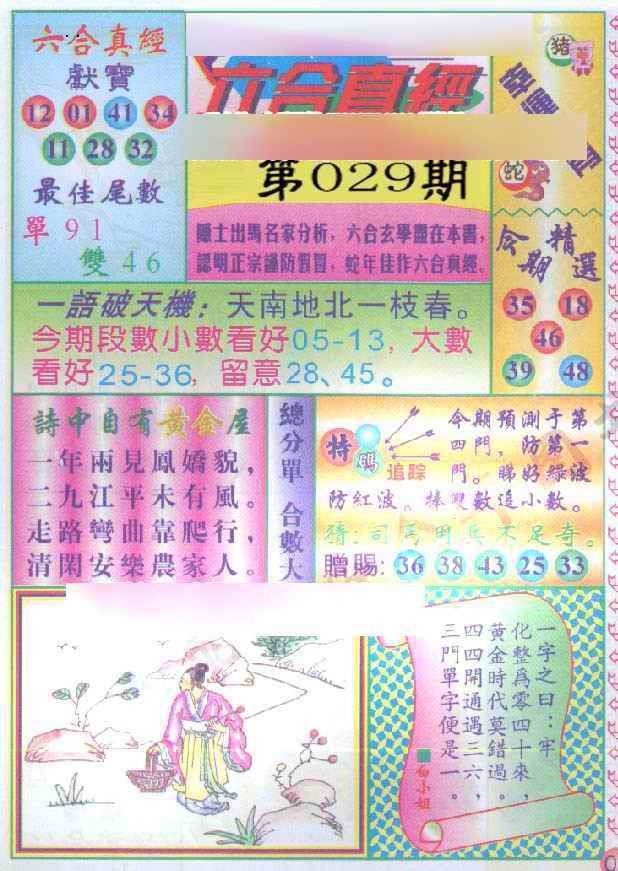 六合真經
獻寶
12 01 41 34
11 28 32
最佳尾數
單 9 1
雙 4 6
六合真經
第029期
隱士出馬名家分析，六合玄學盡在本書，
認明正宗謹防假冒，蛇年佳作六合真經。
猪
蛇
今期精選
35 18
46
39 48
一語破天機：天南地北一枝春。
今期段數小數看好05-13，大數
看好25-36，留意28、45。
詩中自有黃金屋
一年兩見鳳嬌貌，
二九江平未有風。
走路彎曲靠爬行，
清閑安樂農家人。
總分單 合數大
特碼
追踪
今期預測于第
四門，防第一
門。睇好綠波
防紅波。捧雙數追小數。
猜：司馬用兵不足奇。
贈賜：36 38 43 25 33
一字之曰：牢
化整為零四十來，
黃金時代莫錯過。
四四開通遇三六，
三門單字便是一。
白小姐